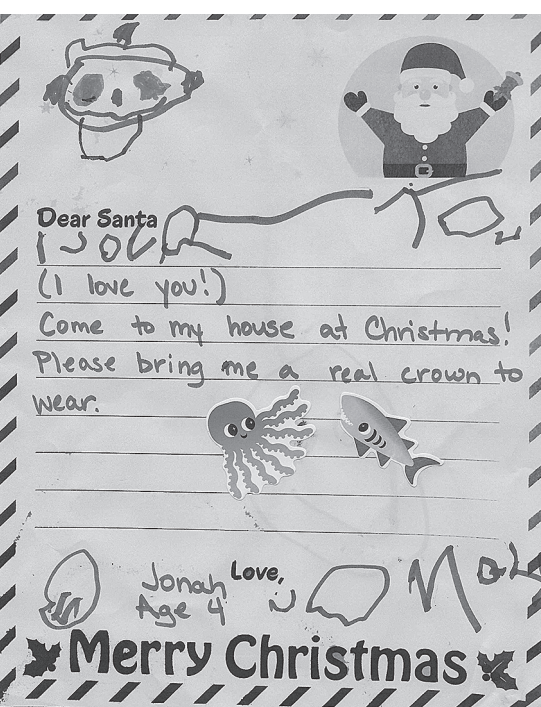 Dear Santa
(I love you!)
Come to my house at Christmas!
Please bring me a real crown to
wear.
Love,
Jonah
Age 4
Merry Christmas